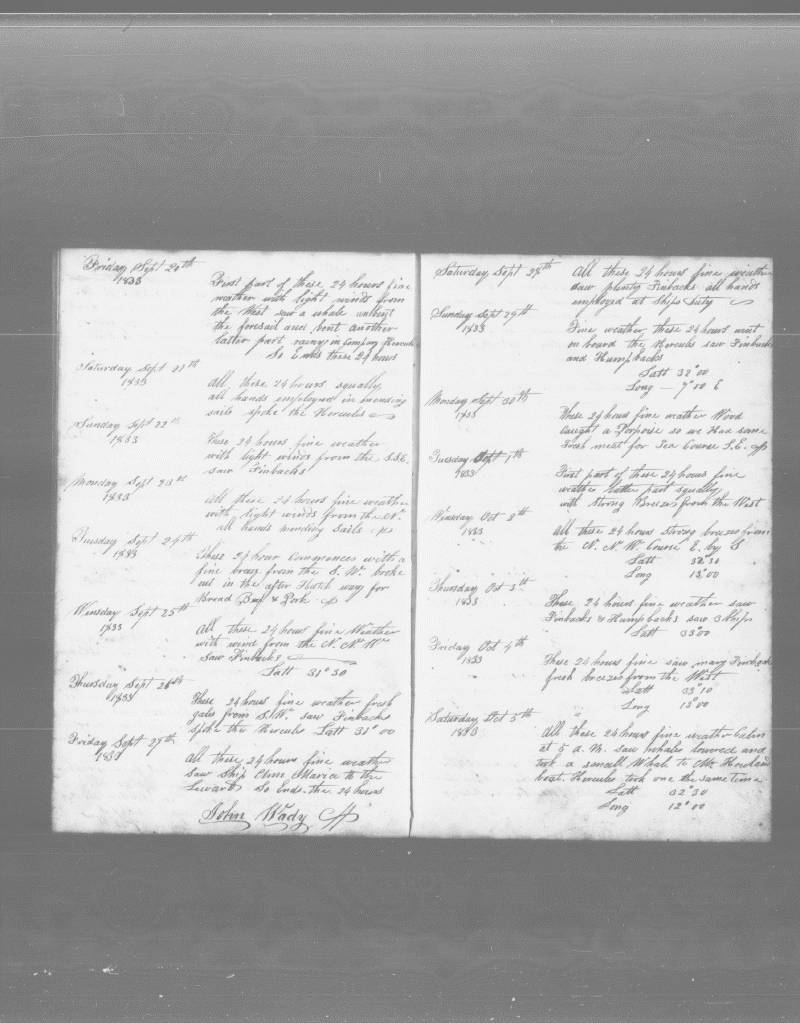 Friday Sept 20th
1833
First part of these 24 hours fine
weather with light winds from
the West saw a whale unbent
the foresail and bent another
latter part rainy in Company Hercules
So Ends these 24 hours
Saturday Sept 21st
1833
All these 24 hours squally
all hands employed in mending
sails spoke the Hercules
Sunday Sept 22nd
1833
These 24 hours fine weather
with light winds from the S.S.E.
saw Finbacks
Monday Sept 23rd
1833
All these 24 hours fine weather
with light winds from the N.
all hands mending Sails
Tuesday Sept 24th
1833
These 24 hour Commences with a
fine breeze from the S. W. broke
out in the after Hatch way for
Bread Beef & Pork
Winsday Sept 25th
1833
All these 24 hours fine Weather
with wind from the N. N. W.
Saw Finbacks
Latt 31° 30
Thursday Sept 26th
1833
These 24 hours fine weather fresh
gales from S.W. saw Finbacks
spoke the Hercules Latt 31° 00
Friday Sept 27th
1833
All these 24 hours fine weather
saw Ship Maria to the
Leward So Ends the 24 hours
John Wady
Saturday Sept 28th
All these 24 hours fine weather
saw plenty Finbacks all hands
employed at Ships Duty
Sunday Sept 29th
1833
Fine weather these 24 hours went
on board the Hercules saw Finbacks
and Humpbacks
Latt 32° 00
Long - 7° 00 E
Monday Sept 30th
1833
These 24 hours fine weather Wood
caught a Porpoise so we Had some
Fresh meat for Sea Course S.E.
Tuesday Oct 1th
1833
First part of these 24 hours fine
weather latter part squally
with Strong Breezes from the West
Winsday Oct 2th
1833
All these 24 hours Strong breezes from
the N. N. W. Course E. by S
Latt 32° 30
Long 13° 00
Thursday Oct 3th
1833
These 24 hours fine weather saw
Finbacks & Humpbacks saw 3 Ships
Latt 33° 00
Friday Oct 4th
1833
These 24 hours fine saw many Finbacks
fresh breezes from the West
Latt 33° 10
Long 13° 00
Saturday Oct 5th
1833
All these 24 hours fine weather Calm
at 5 A. M. saw whales lowered and
took a small Whale to Mr Howland
boat. Hercules took one the same time
Latt 32° 30
Long 12° 00